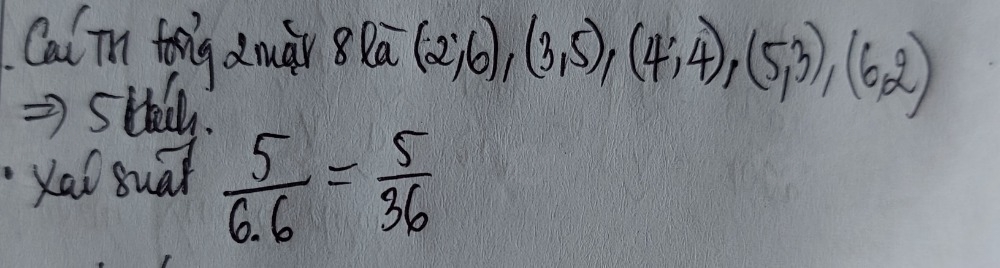 . Các TH tổng 2 mặt 8 là (2;6), (3,5), (4;4), (5,3), (6,2)
=> 5 cách.
• Xác suất 5/6.6 = 5/36